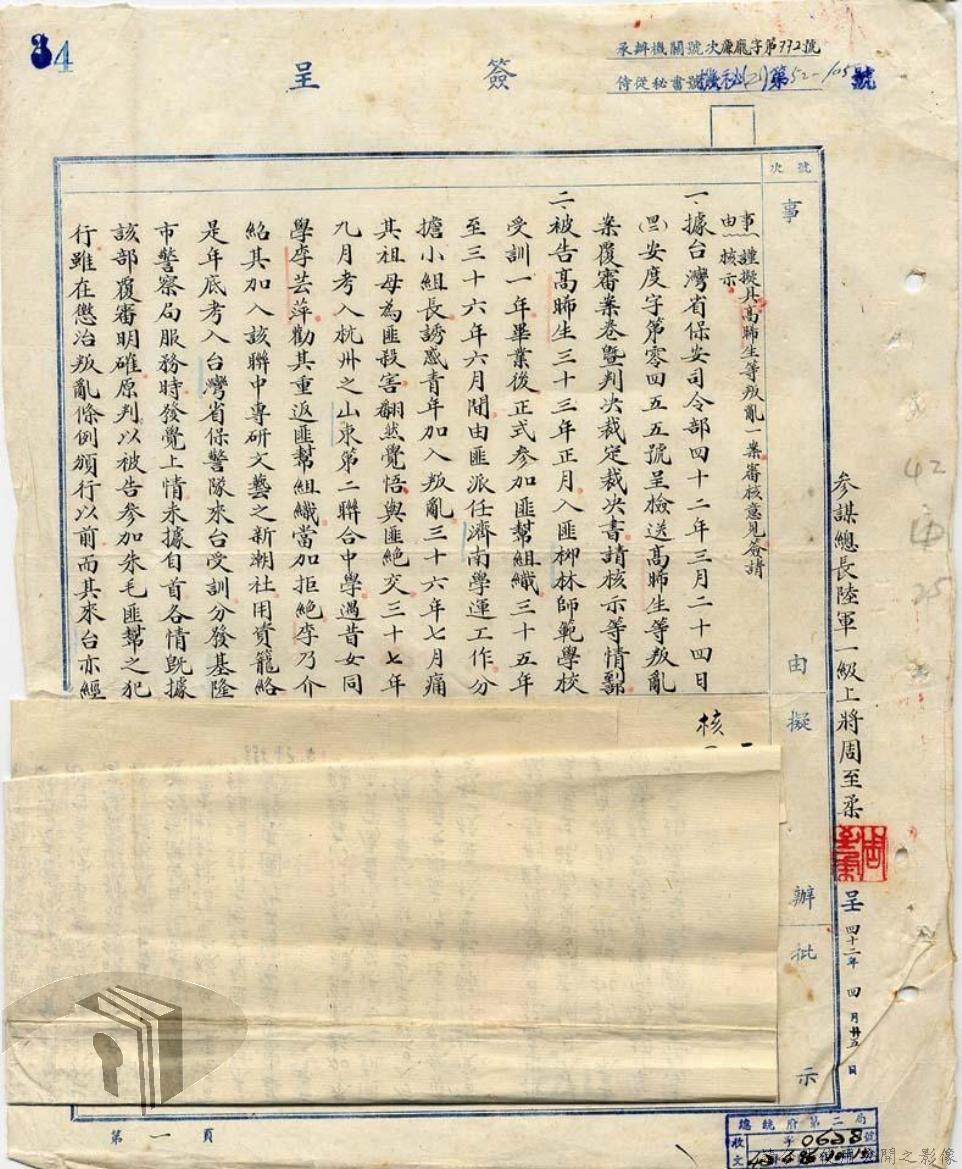 34
簽呈
承辦機關號次廉龐字第772號
侍從秘書號機秘(2)第52-105號
號次
事由擬辦批示
參謀總長陸軍一級上將周至柔
呈四十二年四月廿五日
事由:謹擬具高鈵生等叛亂一案審核意見簽請
核示
一、據台灣省保安司令部四十二年三月二十四日
(四)安度字第零四五五號呈檢送高鈵生等叛亂
案覆審案卷暨判决裁定裁决書請核示等情到部
二、被告高鈵生三十三年正月入匪柳林師範學校
受訓一年畢業後正式參加匪幫組織三十五年
至三十六年六月間由匪派任濟南學運工作分
擔小組長誘惑青年加入叛亂三十六年七月痛
其祖母為匪殺害翻然覺悟與匪絕交三十七年
九月考入杭州之山東第二聯合中學遇昔女同
學李芸萍勸其重返匪幫組織當加拒絕李乃介
紹其加入該聯中專研文藝之新潮社用資籠絡
是年底考入台灣省保警隊來台受訓分發基隆
市警察局服務時發覺上情未據自首各情旣據
該部覆審明確原判以被告參加朱毛匪幫之犯
行雖在懲治叛亂條例頒行以前而其來台亦經
核
42
25
第一頁
總統府第二局
收文 字0628號
開之影像